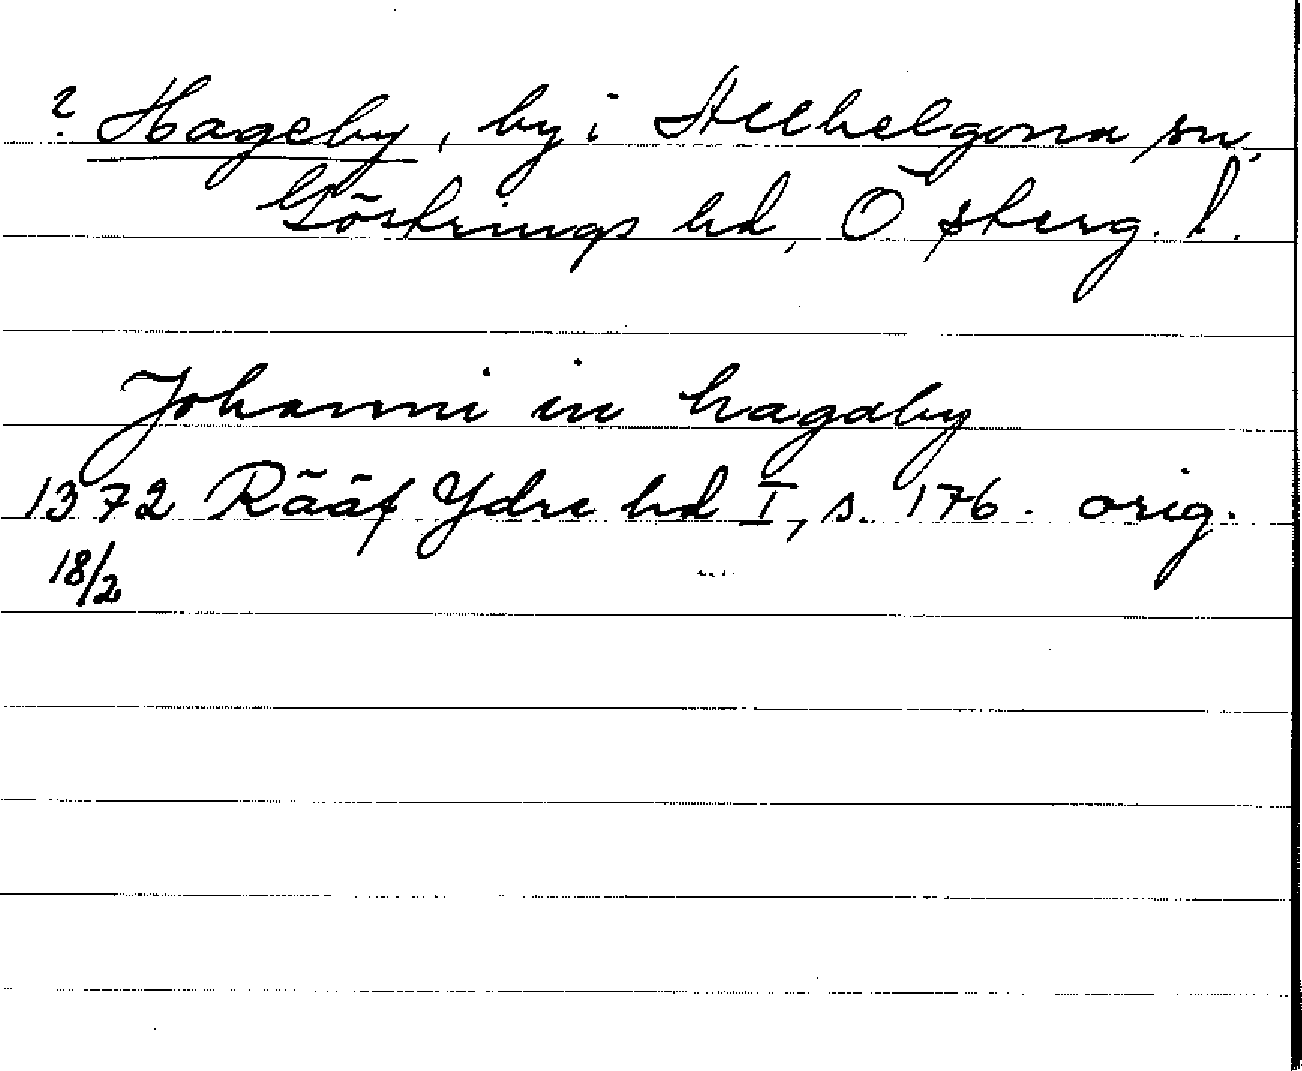 ? Hageby, by i Allhelgona sn,
Göstrings hd, Österg. l.
Johanni in hagaby
1372 Rääf Ydre hd I, s. 176. orig.
18/2